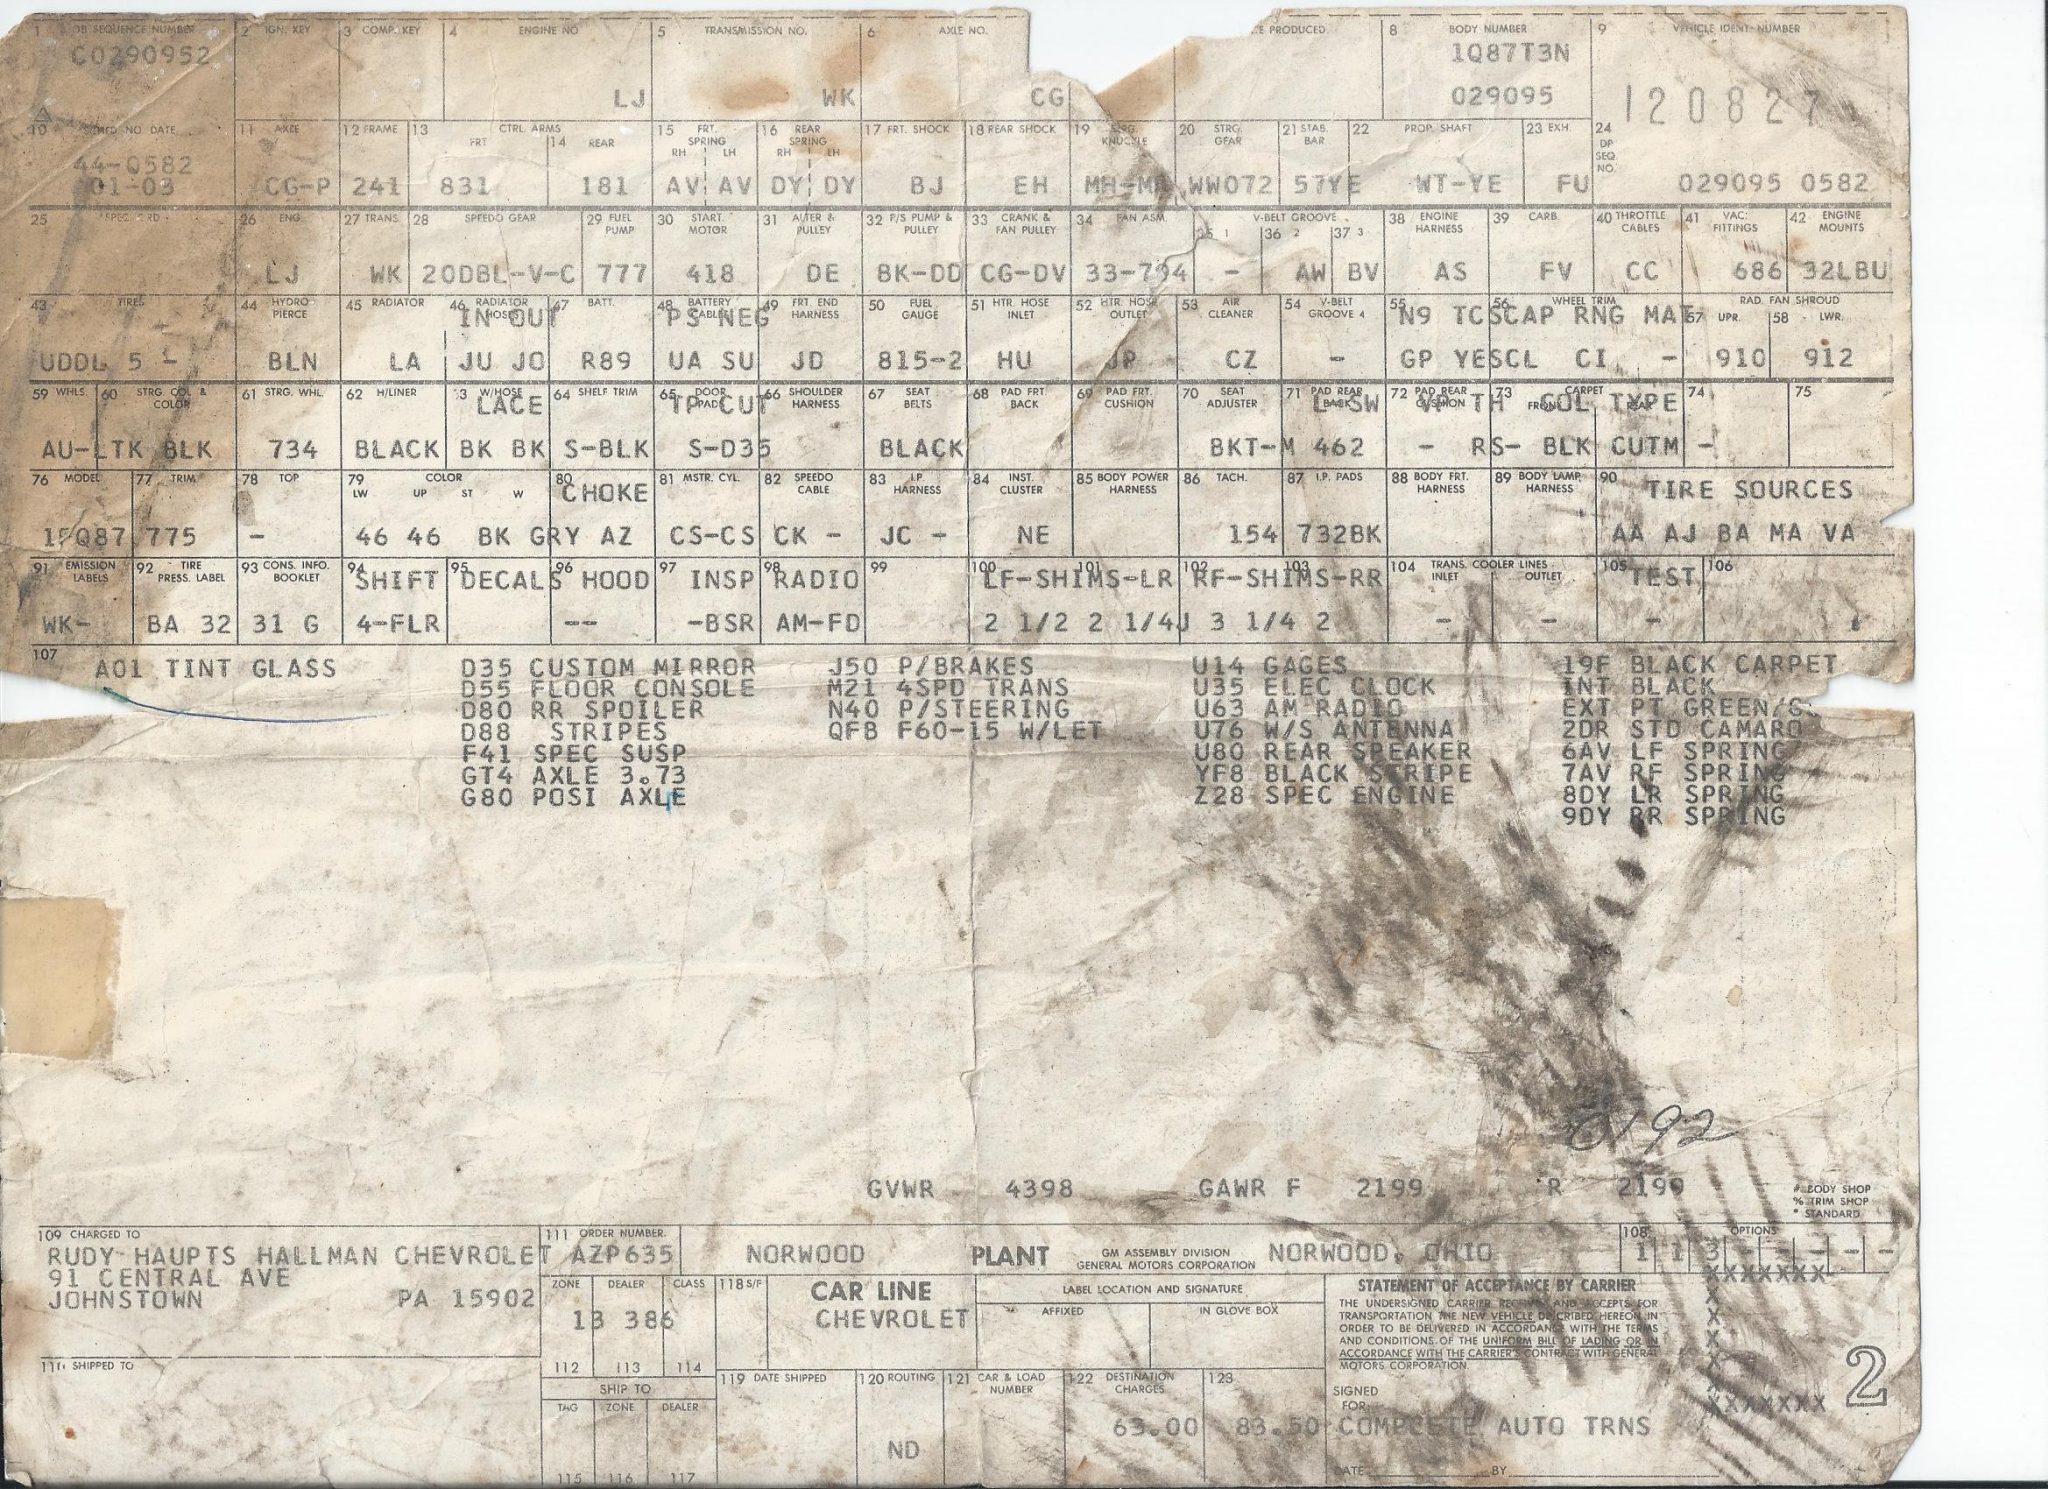 1 JOB SEQUENCE NUMBER 2 IGN. KEY 3 COMP. KEY 4 ENGINE NO 5 TRANSMISSION NO. 6 AXLE NO. PRODUCED 8 BODY NUMBER 9 VEHICLE IDENT. NUMBER
C0290952 1Q87T3N
LJ WK CG 029095 120827
10 SCHED NO. DATE 11 AXLE 12 FRAME 13 CTRL. ARMS FRT 14 REAR 15 FRT. SPRING RH LH 16 REAR SPRING RH LH 17 FRT. SHOCK 18 REAR SHOCK 19 STRG. KNUCKLE 20 STRG. GEAR 21 STAB. BAR 22 PROP. SHAFT 23 EXH. 24 DP SEQ. NO.
44-0582
01-03 CG-P 241 831 181 AV AV DY DY BJ EH WW072 57YE WT-YE FU 029095 0582
25 26 ENG. 27 TRANS 28 SPEEDO GEAR 29 FUEL PUMP 30 START. MOTOR 31 ALTER & PULLEY 32 P/S PUMP & PULLEY 33 CRANK & FAN PULLEY 34 FAN ASM. V-BELT GROOVE 35 1 36 2 37 3 38 ENGINE HARNESS 39 CARB. 40 THROTTLE CABLES 41 VAC. FITTINGS 42 ENGINE MOUNTS
LJ WK 20DBL-V-C 777 418 DE 8K-DD CG-DV 33-794 - AW BV AS FV CC 686 32LBU
43 TIRES 44 HYDRO PIERCE 45 RADIATOR 46 RADIATOR HOSE 47 BATT. 48 BATTERY CABLE 49 FRT. END HARNESS 50 FUEL GAUGE 51 HTR. HOSE INLET 52 HTR. HOSE OUTLET 53 AIR CLEANER 54 V-BELT GROOVE 4 55 56 WHEEL TRIM RAD. FAN SHROUD 57 UPR. 58 LWR.
IN OUT PS NEG N9 TCSCAP RNG MAT
UDDL 5 - BLN LA JU JO R89 UA SU JD 815-2 HU JP CZ - GP YESCL CI - 910 912
59 WHLS. 60 STRG. COL & COLOR 61 STRG. WHL. 62 H/LINER 63 W/HOSE 64 SHELF TRIM 65 DOOR PAD 66 SHOULDER HARNESS 67 SEAT BELTS 68 PAD FRT. BACK 69 PAD FRT. CUSHION 70 SEAT ADJUSTER 71 PAD REAR BACK 72 PAD REAR CUSHION 73 CARPET FRONT REAR 74 75
LACE TP CUT L SW VP TH COL TYPE
AU-LTK BLK 734 BLACK BK BK S-BLK S-D35 BLACK BKT-M 462 - RS- BLK CUTM -
76 MODEL 77 TRIM 78 TOP 79 COLOR LW UP ST W 80 81 MSTR. CYL. 82 SPEEDO CABLE 83 I.P. HARNESS 84 INST. CLUSTER 85 BODY POWER HARNESS 86 TACH. 87 I.P. PADS 88 BODY FRT. HARNESS 89 BODY LAMP HARNESS 90
CHOKE TIRE SOURCES
1FQ87 775 - 46 46 BK GRY AZ CS-CS CK - JC - NE 154 732BK AA AJ BA MA VA
91 EMISSION LABELS 92 TIRE PRESS. LABEL 93 CONS. INFO. BOOKLET 94 95 96 97 98 99 100 101 102 103 104 TRANS. COOLER LINES INLET OUTLET 105 106
SHIFT DECALS HOOD INSP RADIO LF-SHIMS-LR RF-SHIMS-RR TEST
WK- BA 32 31 G 4-FLR -- -BSR AM-FD 2 1/2 2 1/4J 3 1/4 2 - - -
107
A01 TINT GLASS D35 CUSTOM MIRROR J50 P/BRAKES U14 GAGES 19F BLACK CARPET
D55 FLOOR CONSOLE M21 4SPD TRANS U35 ELEC CLOCK INT BLACK
D80 RR SPOILER N40 P/STEERING U63 AM RADIO EXT PT GREEN/G
D88 STRIPES QFB F60-15 W/LET U76 W/S ANTENNA 2DR STD CAMARO
F41 SPEC SUSP U80 REAR SPEAKER 6AV LF SPRING
GT4 AXLE 3.73 YF8 BLACK STRIPE 7AV RF SPRING
G80 POSI AXLE Z28 SPEC ENGINE 8DY LR SPRING
9DY RR SPRING
0192
GVWR 4398 GAWR F 2199 R 2199
# BODY SHOP
% TRIM SHOP
* STANDARD
109 CHARGED TO 111 ORDER NUMBER. 108 OPTIONS
RUDY HAUPTS HALLMAN CHEVROLET AZP635 NORWOOD PLANT GM ASSEMBLY DIVISION GENERAL MOTORS CORPORATION NORWOOD, OHIO 1 1 3 - - - - -
91 CENTRAL AVE
JOHNSTOWN PA 15902
ZONE DEALER CLASS 118 S/F CAR LINE LABEL LOCATION AND SIGNATURE
13 386 CHEVROLET AFFIXED IN GLOVE BOX
112 113 114
STATEMENT OF ACCEPTANCE BY CARRIER
THE UNDERSIGNED CARRIER RECEIVES AND ACCEPTS FOR
TRANSPORTATION THE NEW VEHICLE DESCRIBED HEREON IN
ORDER TO BE DELIVERED IN ACCORDANCE WITH THE TERMS
AND CONDITIONS OF THE UNIFORM BILL OF LADING OR IN
ACCORDANCE WITH THE CARRIER'S CONTRACT WITH GENERAL
MOTORS CORPORATION.
XXXXXXX
X
X
X
X
X
XXXXXXX
2
110 SHIPPED TO
SHIP TO
TAG ZONE DEALER
115 116 117
119 DATE SHIPPED 120 ROUTING 121 CAR & LOAD NUMBER 122 DESTINATION CHARGES 123
ND 63.00 83.50
SIGNED
FOR COMPLETE AUTO TRNS
DATE BY